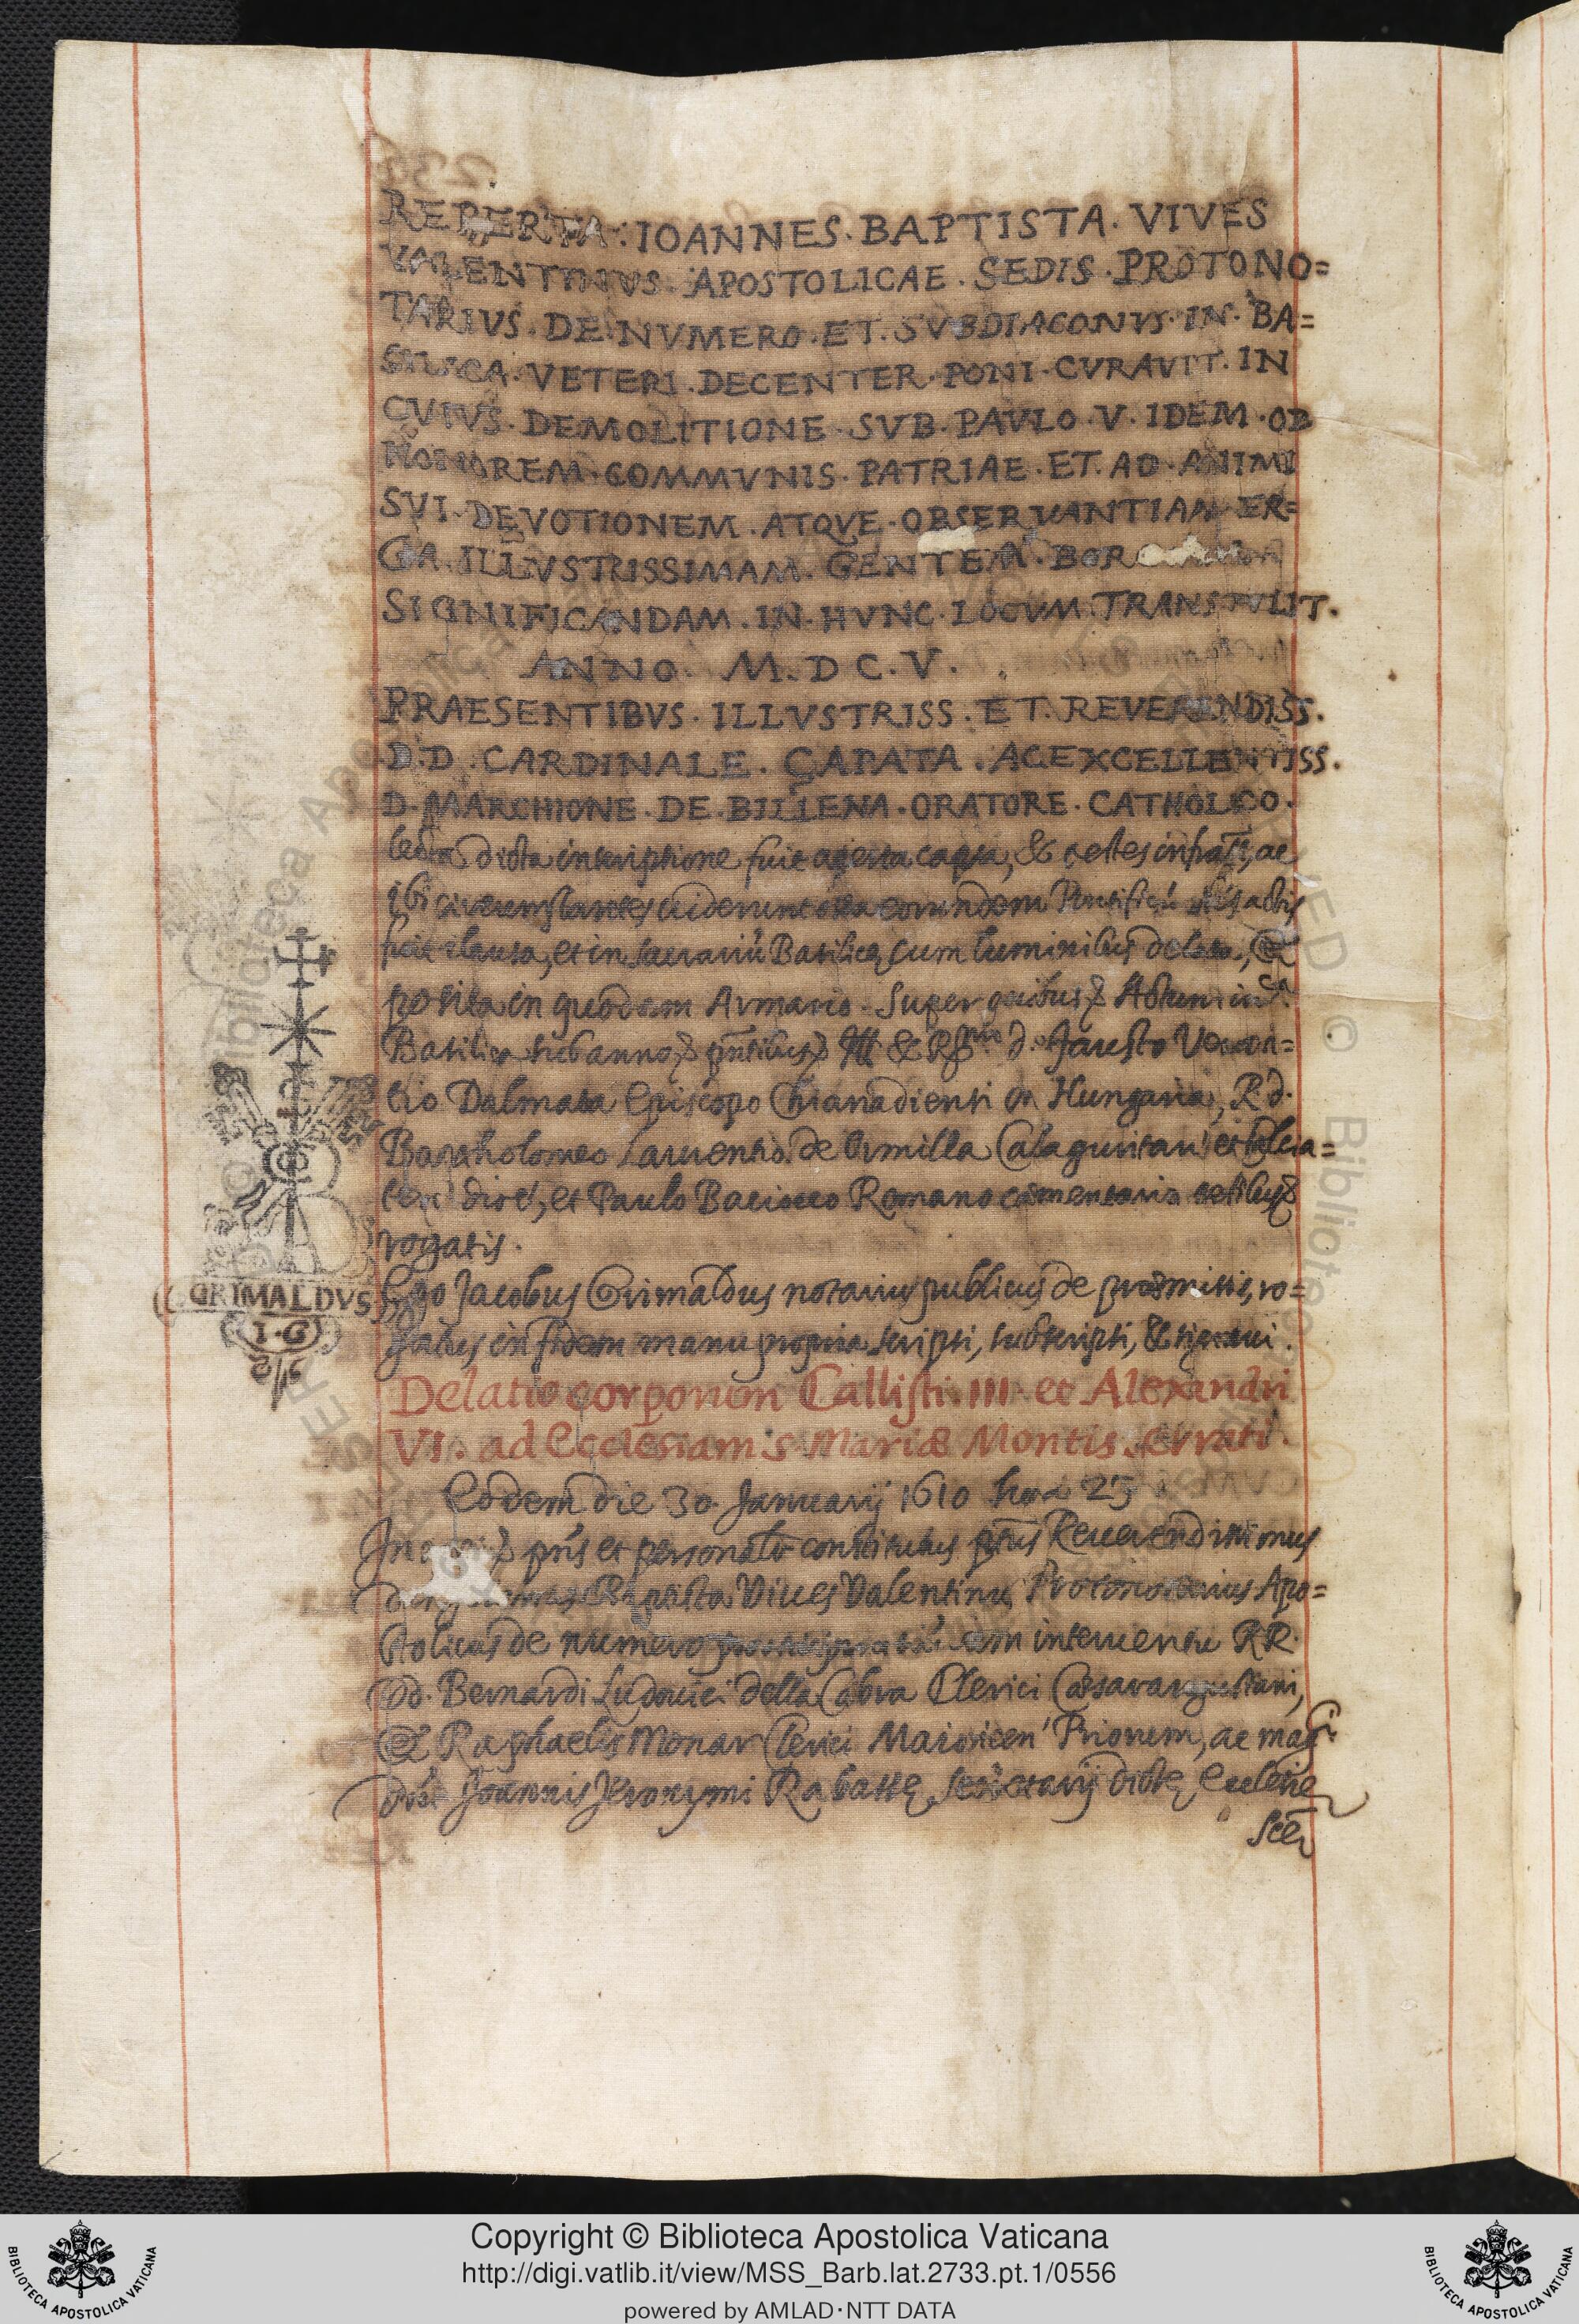 REPERTA · IOANNES · BAPTISTA · VIVES
VALENTINVS · APOSTOLICAE · SEDIS · PROTONO=
TARIVS · DE · NVMERO · ET · SVBDIACONVS · IN · BA=
SILICA · VETERI · DECENTER · PONI · CVRAVIT · IN
CVIVS · DEMOLITIONE · SVB · PAVLO · V · IDEM · OB
HONOREM · COMMVNIS · PATRIAE · ET · AD · ANIMI
SVI · DEVOTIONEM · ATQVE · OBSERVANTIAM · ER=
GA · ILLVSTRISSIMAM · GENTEM ·
SIGNIFICANDAM · IN · HVNC · LOCVM · TRANSTVLIT ·
ANNO · M · D C · V ·
PRAESENTIBVS · ILLVSTRISS · ET · REVERENDISS ·
D · D · CARDINALE · ÇAPATA · AC EXCELLENTISS ·
D · MARCHIONE · DE · BILLENA · ORATORE · CATHOLICO ·
lecta dicta inscriptione fuit aperta capsa, & testes infrati, ac
ibi circumstantes viderunt ossa eorundem Pontificū actis
fuit clausa, et in sacrariū Basilicę cum luminibus delata, &
posita in quodam Armario. Super quibus Actum in
Basilica sub anno d. Fausto Veran=
tio Dalmata Episcopo Chianadiensi in Hungaria, R d.
Bartholomeo Laurentio de Armilla Calaguritan' et
dioc', et Paulo Baciocco Romano cæmentario testibus
rogatis.
Ego Jacobus Grimaldus notarius publicus de præmissis, ro=
gatus in fidem manu propria scripsi, subscripsi, & signavi.
GRIMALDVS
I · G
Delatio corporum Callisti · III · et Alexandri
VI · ad Ecclesiam S. Mariæ Montis serrati ·
Eodem die 30. Januarij 1610 hora 23
et personalr constitutus Reverendissimus
Baptista Vives Valentinus Protonotarius Apo=
stolicus de numero cum interventu RR.
Dd. Bernardi Ludovici della Cabra Clerici Cæsaraugustani,
& Raphaelis Monar Clerici Maioricen' Priorum, ac
Joannis Jeronymi Rabassę Secretarij dictę Ecclesię
Copyright © Biblioteca Apostolica Vaticana
http://digi.vatlib.it/view/MSS_Barb.lat.2733.pt.1/0556
powered by AMLAD·NTT DATA
BIBLIOTECA APOSTOLICA VATICANA
BIBLIOTECA APOSTOLICA VATICANA